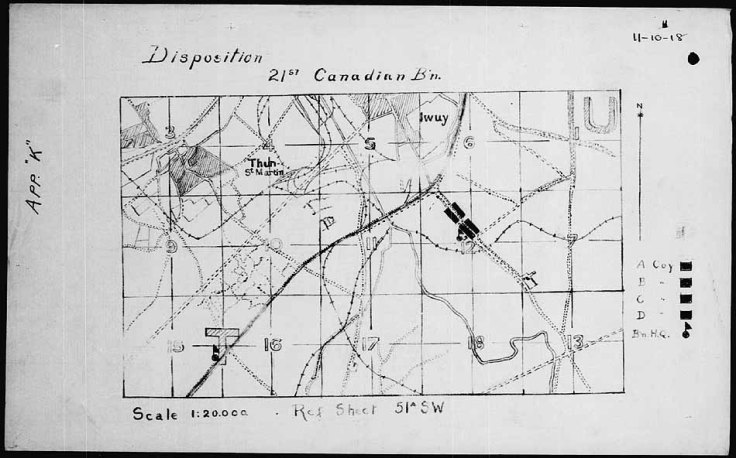 11-10-18
Disposition
21ST Canadian B'n.
APP. "K"
Iwuy
U
3 4 5 6 1
Thun
St Martin
N
9 10 11 12 7
A Coy
B "
C "
D "
Bn. H.Q.
15 16 17 18 13
Scale 1:20.000 . Ref Sheet 51A SW